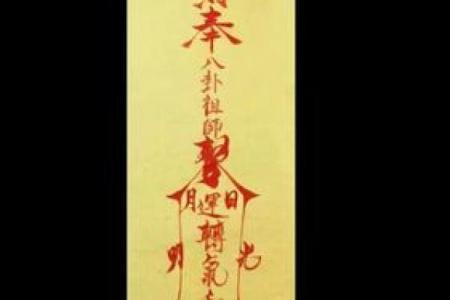 奉
八卦祖師
月運日
轉氣
明
光